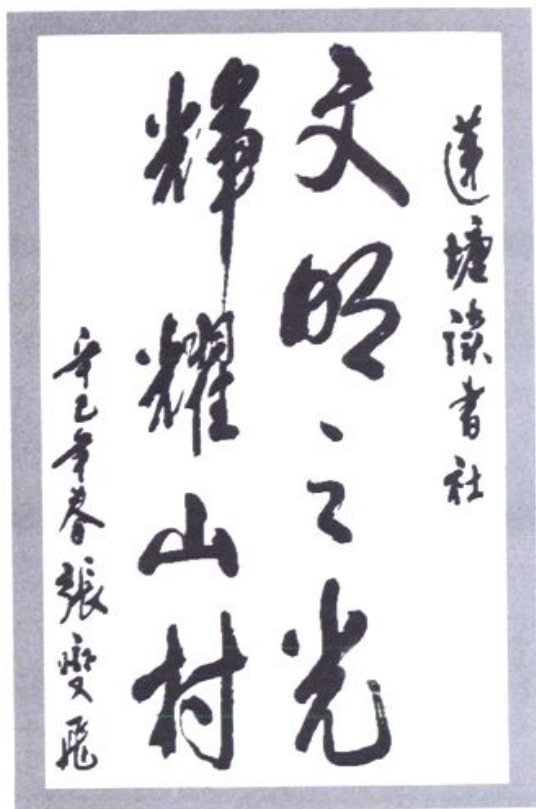 莲塘读书社
文明之光
辉耀山村
辛巳年春張燮飛